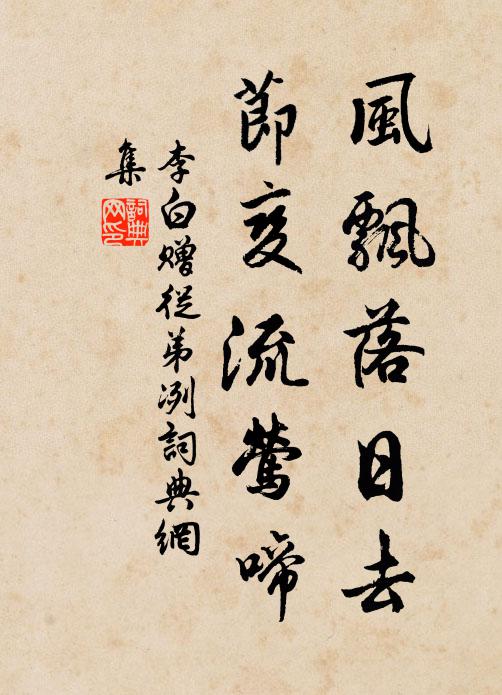 風飄落日去
節變流鶯啼
李白贈從弟冽詞典網
集
詞典網印